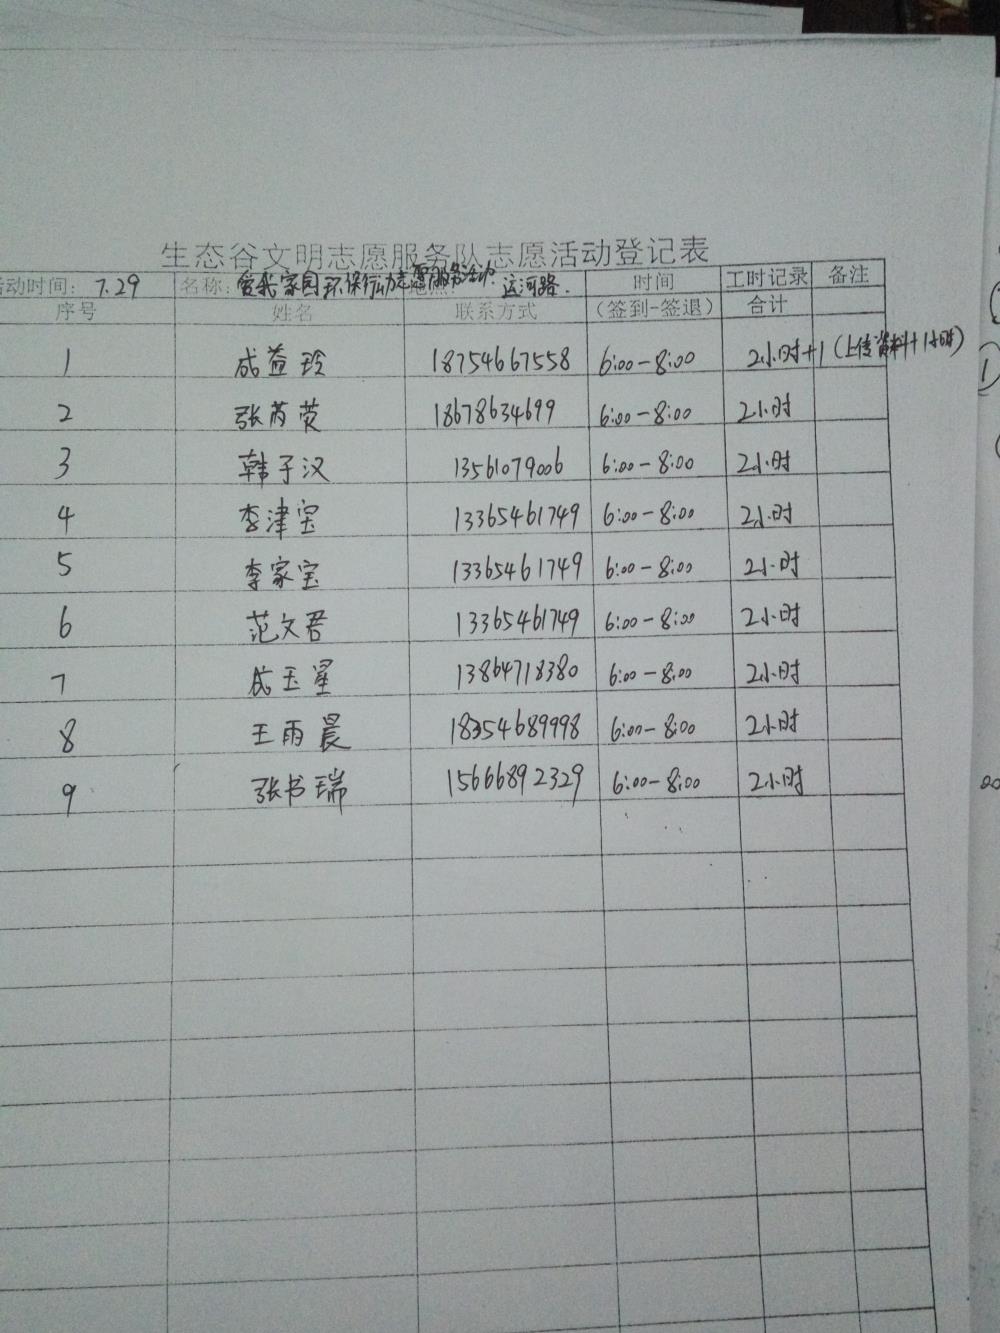 生态谷文明志愿服务队志愿活动登记表
活动时间: 7.29 名称: 爱我家园环保行动志愿服务活动 运河路. 时间 工时记录 备注
序号 姓名 联系方式 (签到-签退) 合计
1 成益玲 18754667558 6:00-8:00 2小时+1 (上传资料+1小时)
2 张芮荧 18678634699 6:00-8:00 2小时
3 韩子汉 13561079006 6:00-8:00 2小时
4 李津宝 13365461749 6:00-8:00 2小时
5 李家宝 13365461749 6:00-8:00 2小时
6 范文君 13365461749 6:00-8:00 2小时
7 成玉星 13864718380 6:00-8:00 2小时
8 王雨晨 18354689998 6:00-8:00 2小时
9 张书瑞 15666892329 6:00-8:00 2小时